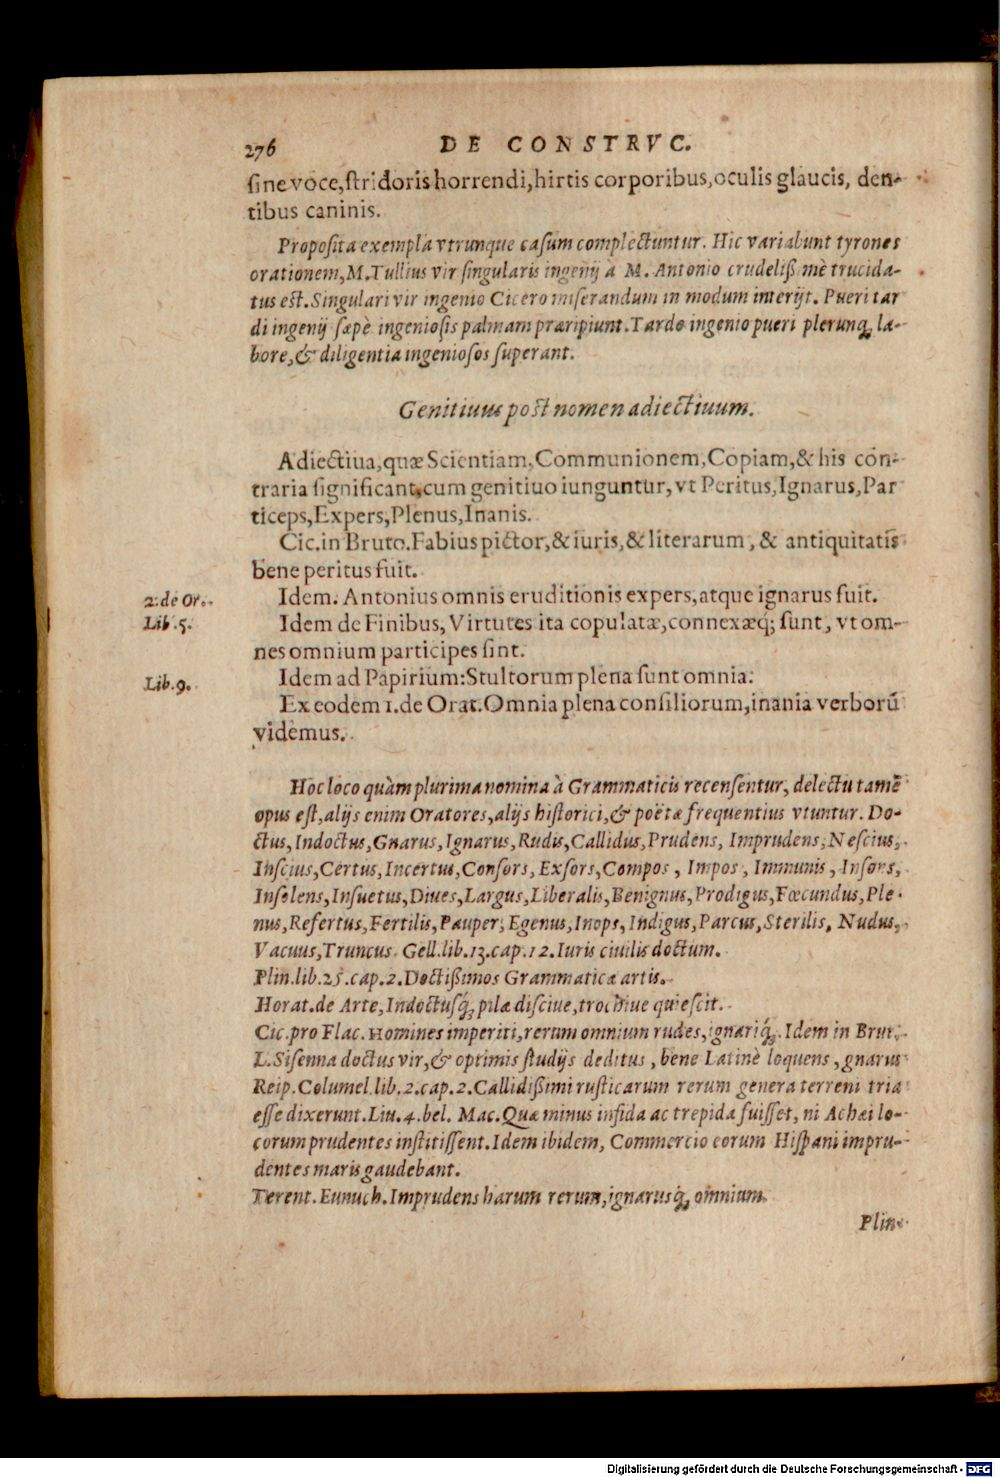 276 DE CONSTRVC.
sine voce, stridoris horrendi, hirtis corporibus, oculis glaucis, den-
tibus caninis.
Proposita exempla vtrunque casum complectuntur. Hic variabunt tyrones
orationem, M. Tullius vir singularis ingenij à M. Antonio crudeliss mè trucida-
tus est. Singulari vir ingenio Cicero miserandum in modum interijt. Pueri tar
di ingenij sæpè ingeniosis palmam præripiunt. Tardo ingenio pueri plerunq́; la-
bore, & diligentia ingeniosos superant.
Genitiuus post nomen adiectiuum.
Adiectiua, quæ Scientiam, Communionem, Copiam, & his con-
traria significant, cum genitiuo iunguntur, vt Peritus, Ignarus, Par
ticeps, Expers, Plenus, Inanis.
Cic. in Bruto. Fabius pictor, & iuris, & literarum, & antiquitatis
bene peritus fuit.
2. de Or. Idem. Antonius omnis eruditionis expers, atque ignarus fuit.
Lib. 5. Idem de Finibus, Virtutes ita copulatæ, connexæq́; sunt, vt om-
nes omnium participes sint.
Lib. 9. Idem ad Papirium: Stultorum plena sunt omnia.
Ex eodem 1. de Orat. Omnia plena consiliorum, inania verborū
videmus.
Hoc loco quàm plurima nomina à Grammaticis recensentur, delectu tamē
opus est, alijs enim Oratores, alijs historici, & poëtæ frequentius vtuntur. Do-
ctus, Indoctus, Gnarus, Ignarus, Rudis, Callidus, Prudens, Imprudens, Nescius,
Inscius, Certus, Incertus, Consors, Exsors, Compos, Impos, Immunis, Insors,
Insolens, Insuetus, Diues, Largus, Liberalis, Benignus, Prodigus, Fœcundus, Ple-
nus, Refertus, Fertilis, Pauper, Egenus, Inops, Indigus, Parcus, Sterilis, Nudus,
Vacuus, Truncus. Gell. lib. 13. cap. 12. Iuris ciuilis doctum.
Plin. lib. 25. cap. 2. Doctissimos Grammaticæ artis.
Horat. de Arte, Indoctusq́; pilæ disciue, trochiue quiescit.
Cic. pro Flac. Homines imperiti, rerum omnium rudes, ignariq́;. Idem in Brut.
L. Sisenna doctus vir, & optimis studijs deditus, bene Latinè loquens, gnarus
Reip. Columel. lib. 2. cap. 2. Callidissimi rusticarum rerum genera terreni tria
esse dixerunt. Liu. 4. bel. Mac. Quæ minus infida ac trepida fuisset, ni Achæi lo-
corum prudentes institissent. Idem ibidem, Commercio eorum Hispani impru-
dentes maris gaudebant.
Terent. Eunuch. Imprudens harum rerum, ignarusq́; omnium.
Plin.
Digitalisierung gefördert durch die Deutsche Forschungsgemeinschaft - DFG